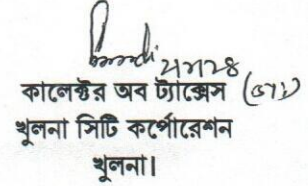 কালেক্টর অব ট্যাক্সেস (ভাঃ)
খুলনা সিটি কর্পোরেশন
খুলনা।